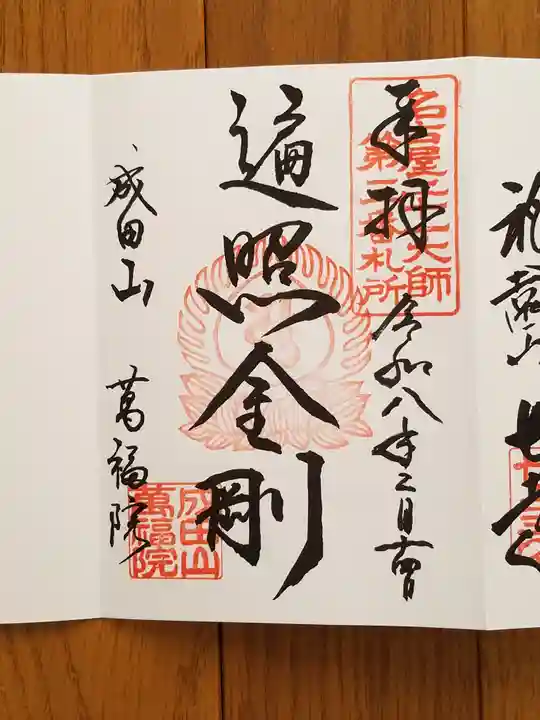 奉拝
名古屋二十一大師
第二番札所
令和八年二月十四日
遍照金剛
成田山 萬福院
成田山
萬福院